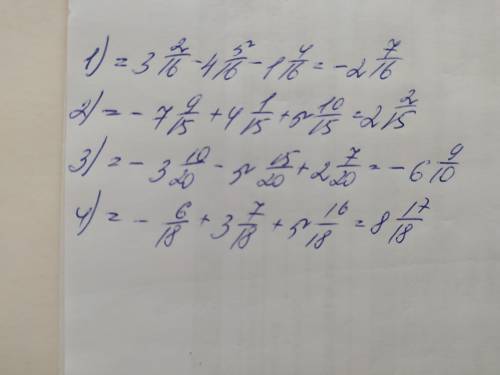 1) = 3 2/16 - 4 5/16 - 1 4/16 = -2 7/16
2) = - 7 9/15 + 4 1/15 + 5 10/15 = 2 2/15
3) = - 3 10/20 - 5 15/20 + 2 7/20 = - 6 9/10
4) = - 6/18 + 3 7/18 + 5 16/18 = 8 17/18